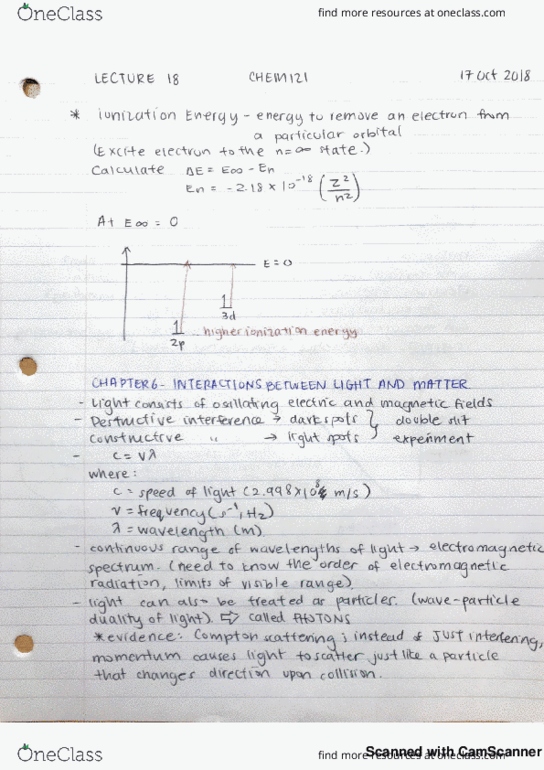 OneClass
find more resources at oneclass.com
LECTURE 18 CHEM121 17 Oct 2018
* ionization Energy - energy to remove an electron from
a particular orbital
(Excite electron to the n=∞ state.)
Calculate ΔE = E∞ - En
En = -2.18 × 10⁻¹⁸ (Z²/n²)
At E∞ = 0
E=0
1
3d
1
2p
higher ionization energy
CHAPTER 6 - INTERACTIONS BETWEEN LIGHT AND MATTER
- Light consists of osillating electric and magnetic fields
- Destructive interference → dark spots } double slit
constructive " → light spots } experiment
- c = νλ
where:
c = speed of light (2.998×10⁸ m/s)
ν = frequency (s⁻¹, Hz)
λ = wavelength (m)
- continuous range of wavelengths of light → electromagnetic
spectrum. (need to know the order of electromagnetic
radiation, limits of visible range).
- light can also be treated as particles. (wave-particle
duality of light). ⇒ called PHOTONS
*evidence: Compton scattering; instead of just interfering,
momentum causes light to scatter just like a particle
that changes direction upon collision.
OneClass
find more resources at oneclass.com
Scanned with CamScanner